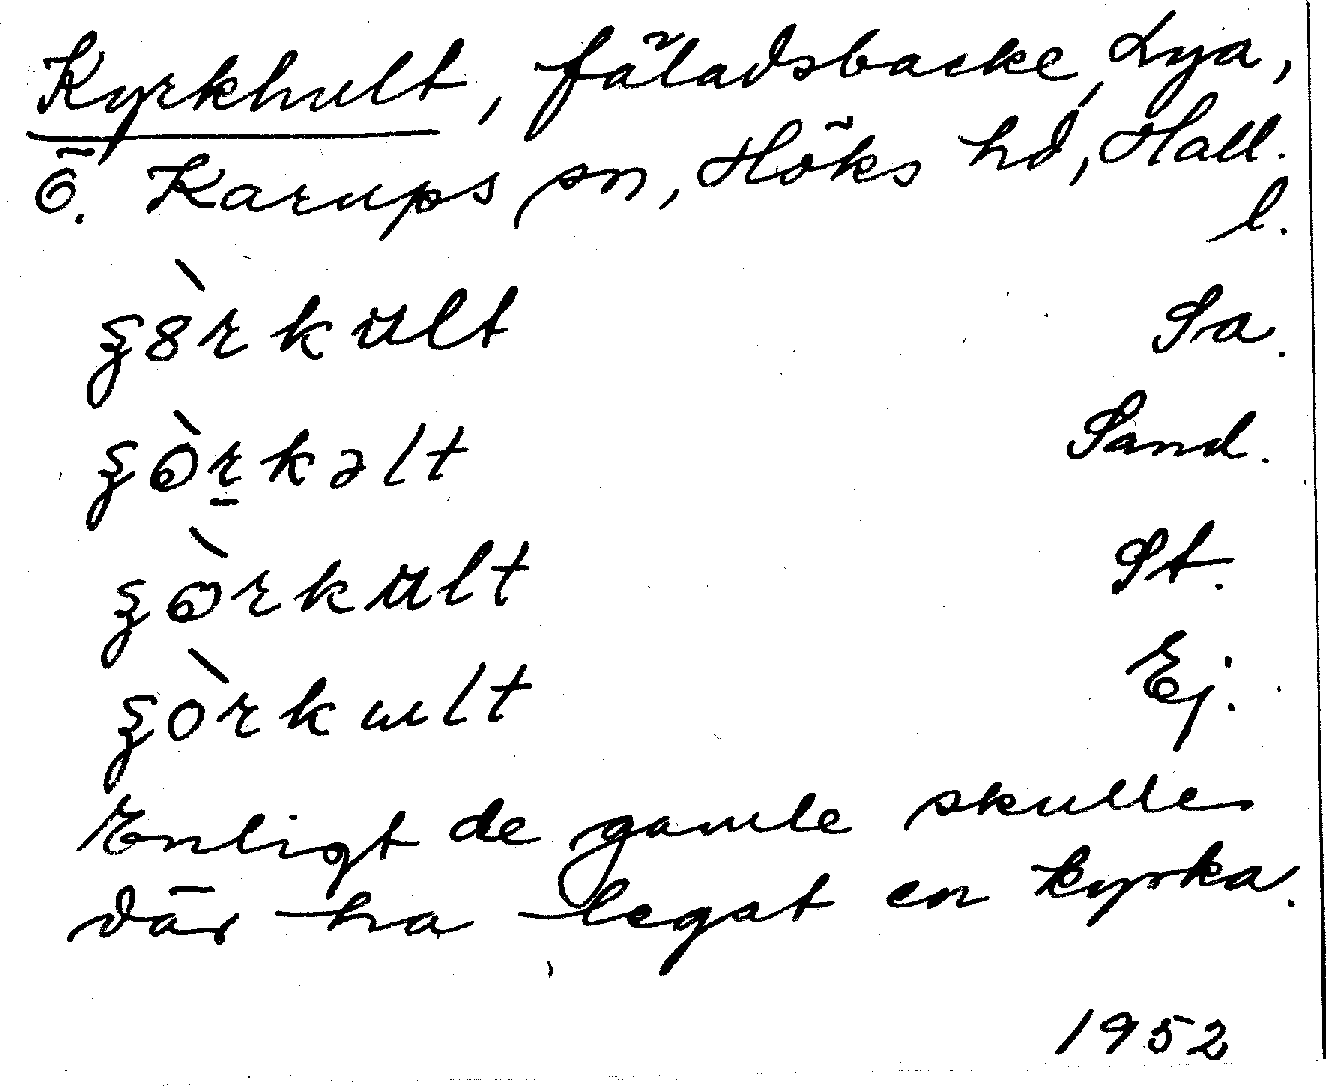 Kyrkhult, fäladsbacke, Lya,
Ö. Karups sn, Höks hd, Hall.
l.
Sa.
Sand.
St.
Ej.
Enligt de gamle skulle
där ha legat en kyrka.
1952